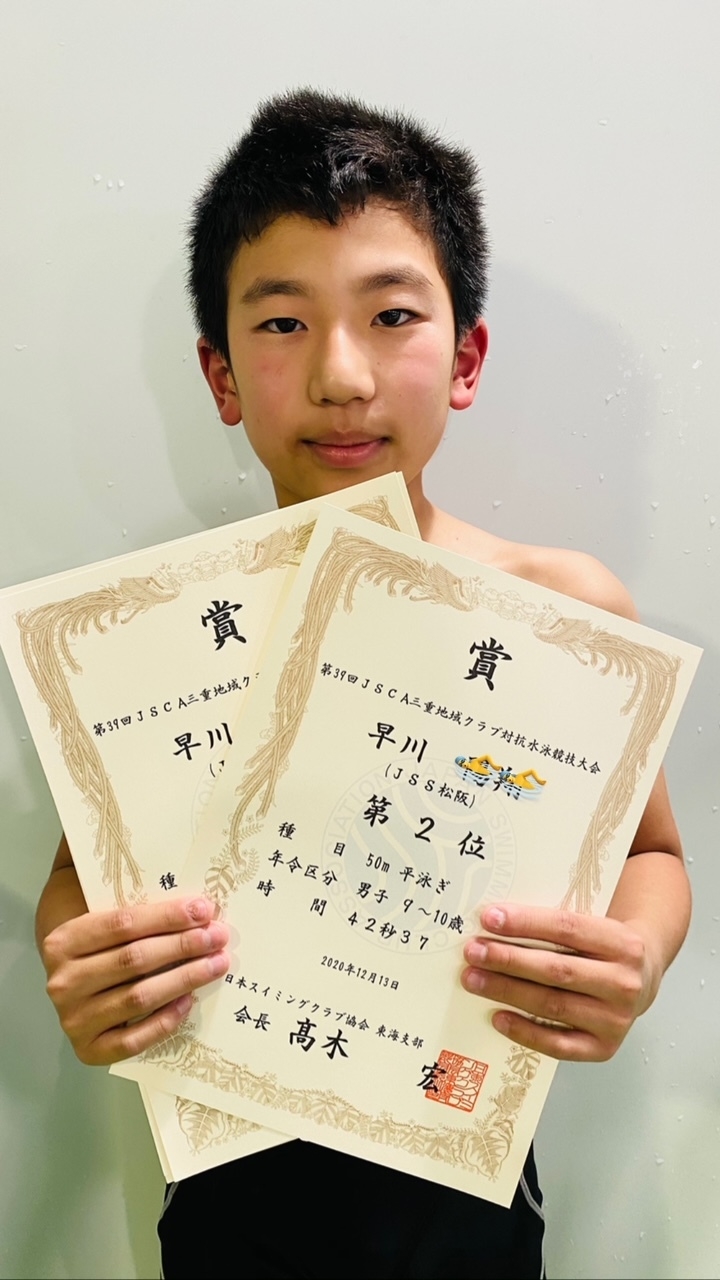 賞
第39回ＪＳＣＡ三重地域ク
早川
種
賞
第39回ＪＳＣＡ三重地域クラブ対抗水泳競技大会
早川
(ＪＳＳ松阪)
第２位
種目 50m 平泳ぎ
年令区分 男子 9～10歳
時間 ４２秒３７
2020年12月13日
日本スイミングクラブ協会 東海支部
会長 髙木 宏